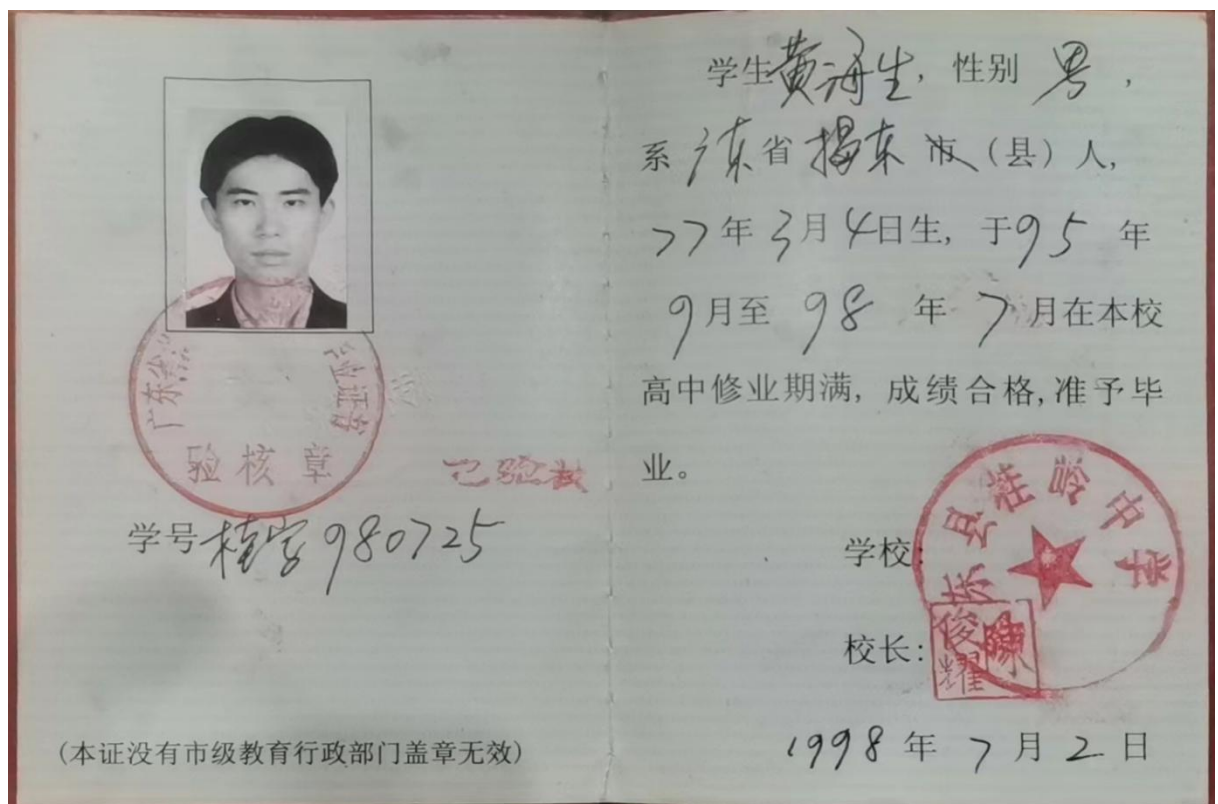 验核章
已验核
学号桂字980725
(本证没有市级教育行政部门盖章无效)
学生黄海生,性别 男,
系广东省揭东市(县)人,
77年3月4日生,于95年
9月至98年7月在本校
高中修业期满,成绩合格,准予毕
业。
东县桂岭中学
学校:
校长:
陈俊耀
1998年7月2日